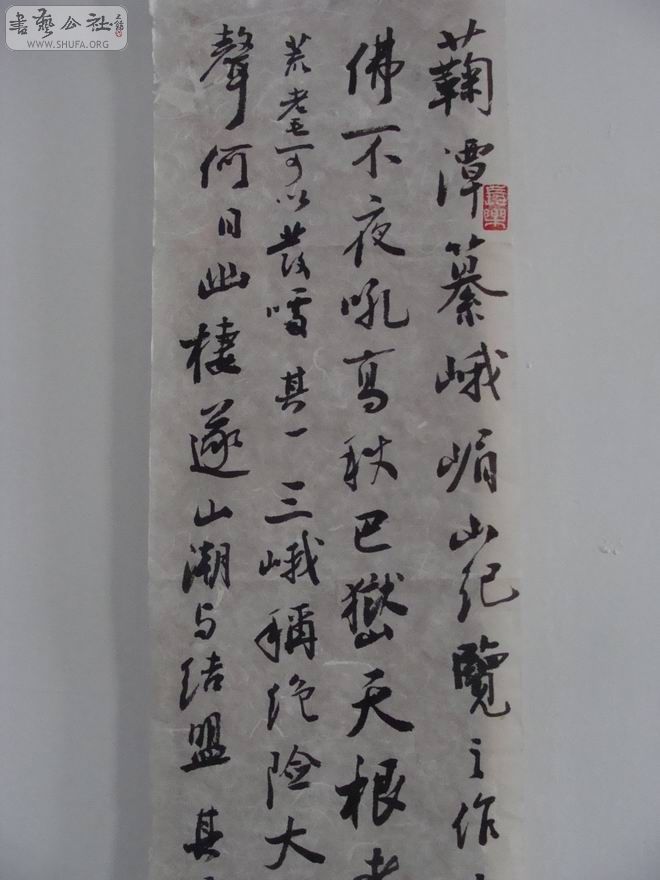 書藝公社
WWW.SHUFA.ORG
蘜潭纂峨嵋山纪覽之作
佛不夜吼高秋巴嶽天根
荒老可以嘯其一三峨稱绝险大
聲何日幽棲遂山湖与结盟其